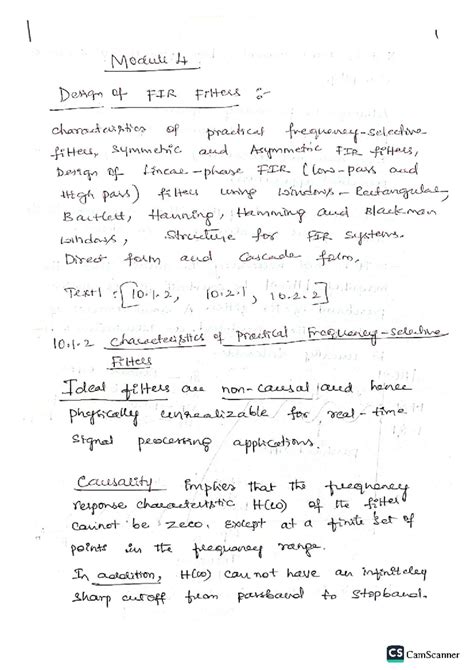 1
Module 4
Design of FIR Filters :-
characteristics of practical frequency-selective
filters, Symmetric and Asymmetric FIR filters,
Design of Linear-phase FIR (low-pass and
High pass) filters using windows - Rectangular,
Bartlett, Hanning, Hamming and Blackman
windows, Structure for FIR Systems.
Direct form and Cascade form.
Text1: [10.1.2, 10.2.1, 10.2.2]
10.1.2 Characteristics of Practical Frequency-selective
Filters
Ideal filters are non-causal and hence
physically unrealizable for real-time
Signal processing applications.
Causality Implies that the frequency
response characteristic H(ω) of the filter
cannot be zero, except at a finite set of
points in the frequency range.
In addition, H(ω) cannot have an infinitely
sharp cutoff from passband to stopband.
CS CamScanner